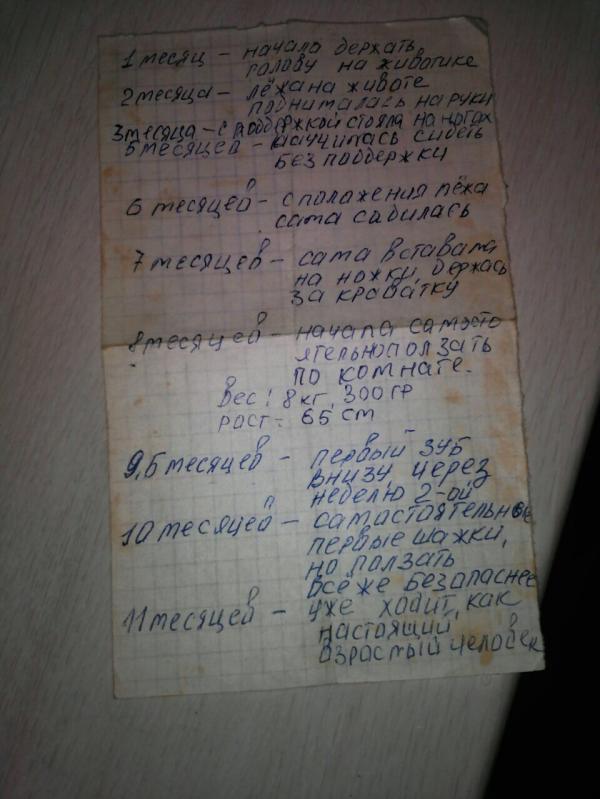 1 месяц – начала держать
голову на животике
2 месяца – лёжа на животе
поднималась на руки
3 месяца – с поддержкой стояла на ногах
5 месяцей – научилась сидеть
без поддержки
6 месяцей – с положения лёжа
сама садилась
7 месяцев – сама вставала
на ножки, держась
за кроватку
8 месяцей – начала самосто
ятельно ползать
по комнате.
Вес: 8 кг, 300 гр
рост – 65 см
9,5 месяцев – первый зуб
внизу, через
неделю 2-ой
10 месяцей – самастоятельные
первые шажки,
но ползать
всё же безапаснее
11 месяцей – уже ходит, как
настоящий
взрослый человек